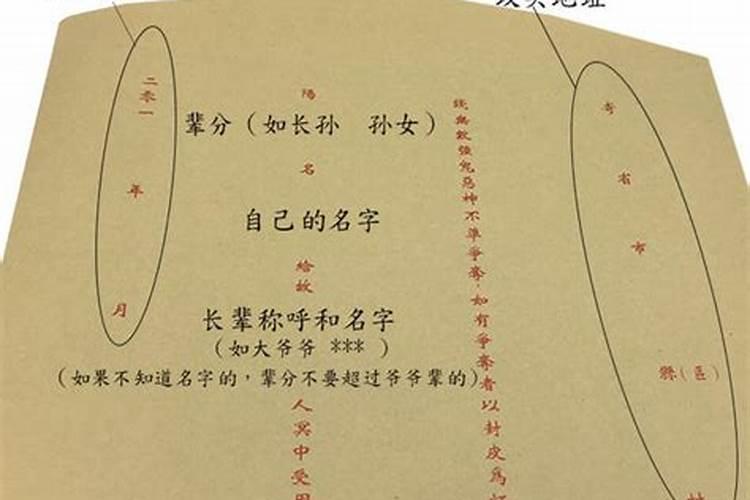 地址
寄 省 市 縣(區)
錢無數強鬼惡神不準爭奪，如有爭奪者以封皮爲
陽
辈分（如长孙 孙女）
名
自己的名字
給故
长辈称呼和名字
（如大爷爷 *** ）
（如果不知道名字的，辈分不要超过爷爷辈的）
人冥中受用
二零一 年 月